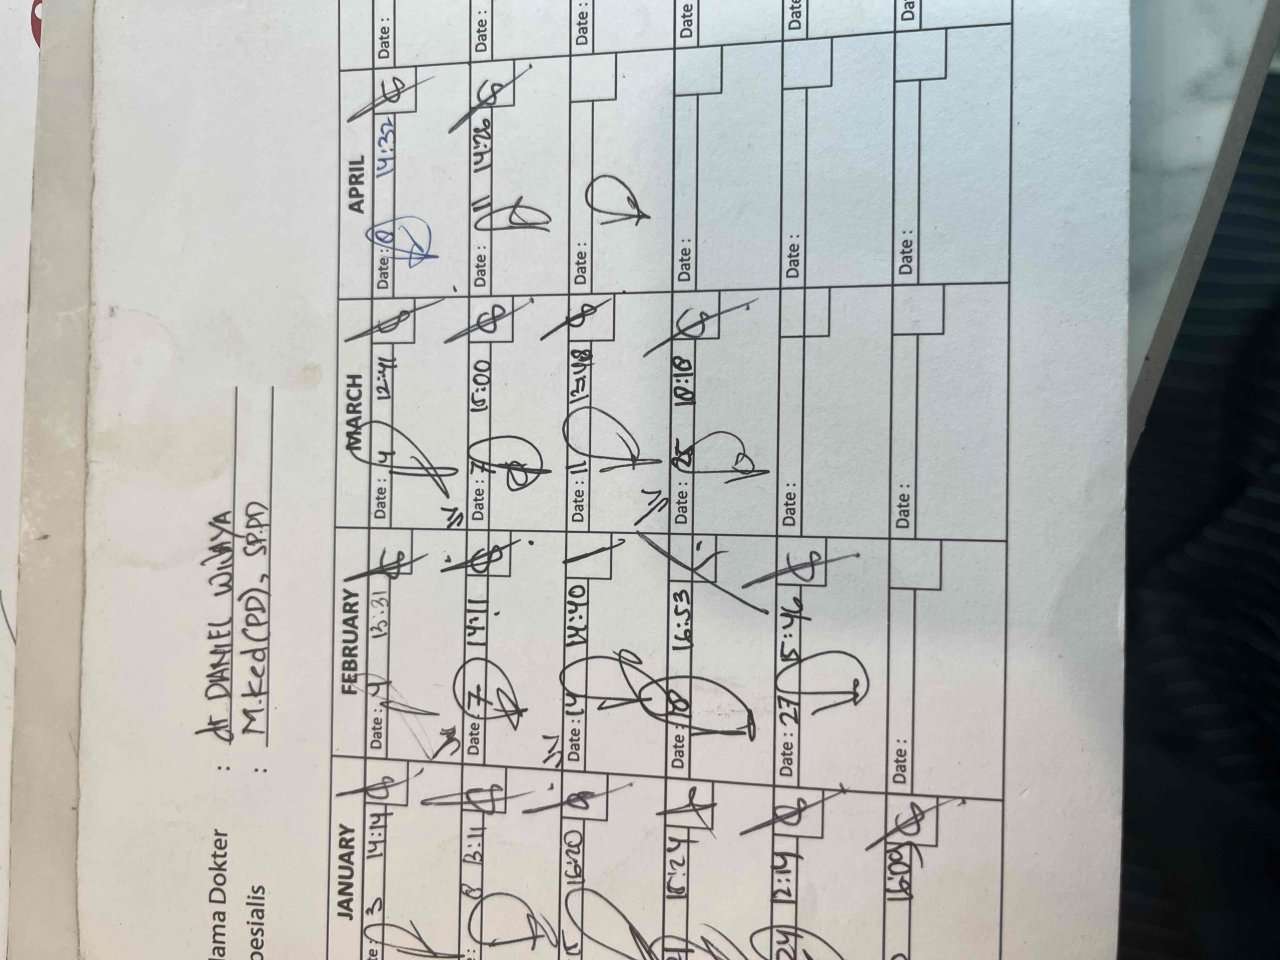 Nama Dokter : dr DANIEL WIJAYA
Spesialis : M.Ked(PD), SP.PD
JANUARY FEBRUARY MARCH APRIL
3 14:14 Date : 4 13:31 Date : 4 12:41 Date : 8 14:32 Date :
8 13:11 Date : 7 14:11 Date : 7 15:00 Date : 11 14:26 Date :
16:20 Date : 14 14:40 Date : 11 13:48 Date : Date :
15:24 Date : 18 16:53 Date : 25 18:18 Date : Date :
24 12:14 Date : 27 15:46 Date : Date : Date :
16:09 Date : Date : Date :